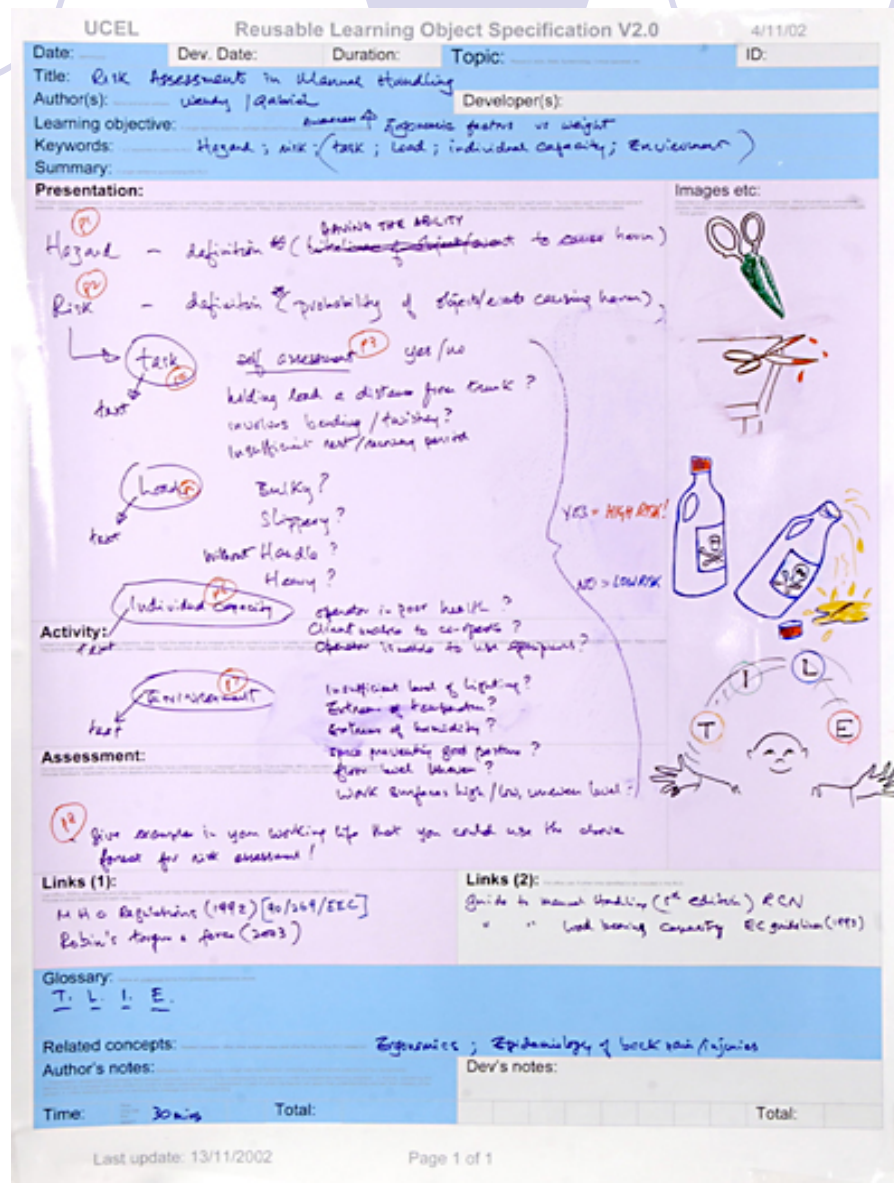 UCEL Reusable Learning Object Specification V2.0 4/11/02
Date: Dev. Date: Duration: Topic: ID:
Title: Risk Assessment in Manual Handling
Author(s): Wendy / Gabriel Developer(s):
Learning objective: Ergonomic factors vs weight
Keywords: Hazard ; risk ; ( task ; Load ; individual capacity ; Environment )
Summary:
Presentation: Images etc:
p1
HAVING THE ABILITY
Hazard - definition ( to cause harm )
p2
Risk - definition ( probability of objects/events causing harm ).
task self assessment p3 yes / no
text holding load a distance from trunk ?
involves bending / twisting ?
Insufficient rest / recovery period
Load Bulky ?
text Slippery ?
YES = HIGH RISK!
without Handle ?
Heavy ?
NO = LOW RISK
Individual capacity p6 operator in poor health ?
Activity: Client unable to co-operate ?
text Operator is unable to use equipment ?
Environment p7 Insufficient level of lighting ?
text Extreme of temperature ?
Extreme of humidity ?
T I L E
Assessment: Space preventing good posture ?
floor level uneven ?
work surfaces high / low, uneven level ?
p8
Give example in your working life that you could use the above
format for risk assessment !
Links (1): Links (2):
M H O Regulations (1992) [90/269/EEC] Guide to manual Handling ( edition) RCN
Robin's torque & force (2003) " " Load bearing capacity EC guidelines
Glossary:
T. L. I. E.
Related concepts: Ergonomics ; Epidemiology of back pain / injuries
Author's notes: Dev's notes:
Time: 30 mins Total: Total:
Last update: 13/11/2002 Page 1 of 1